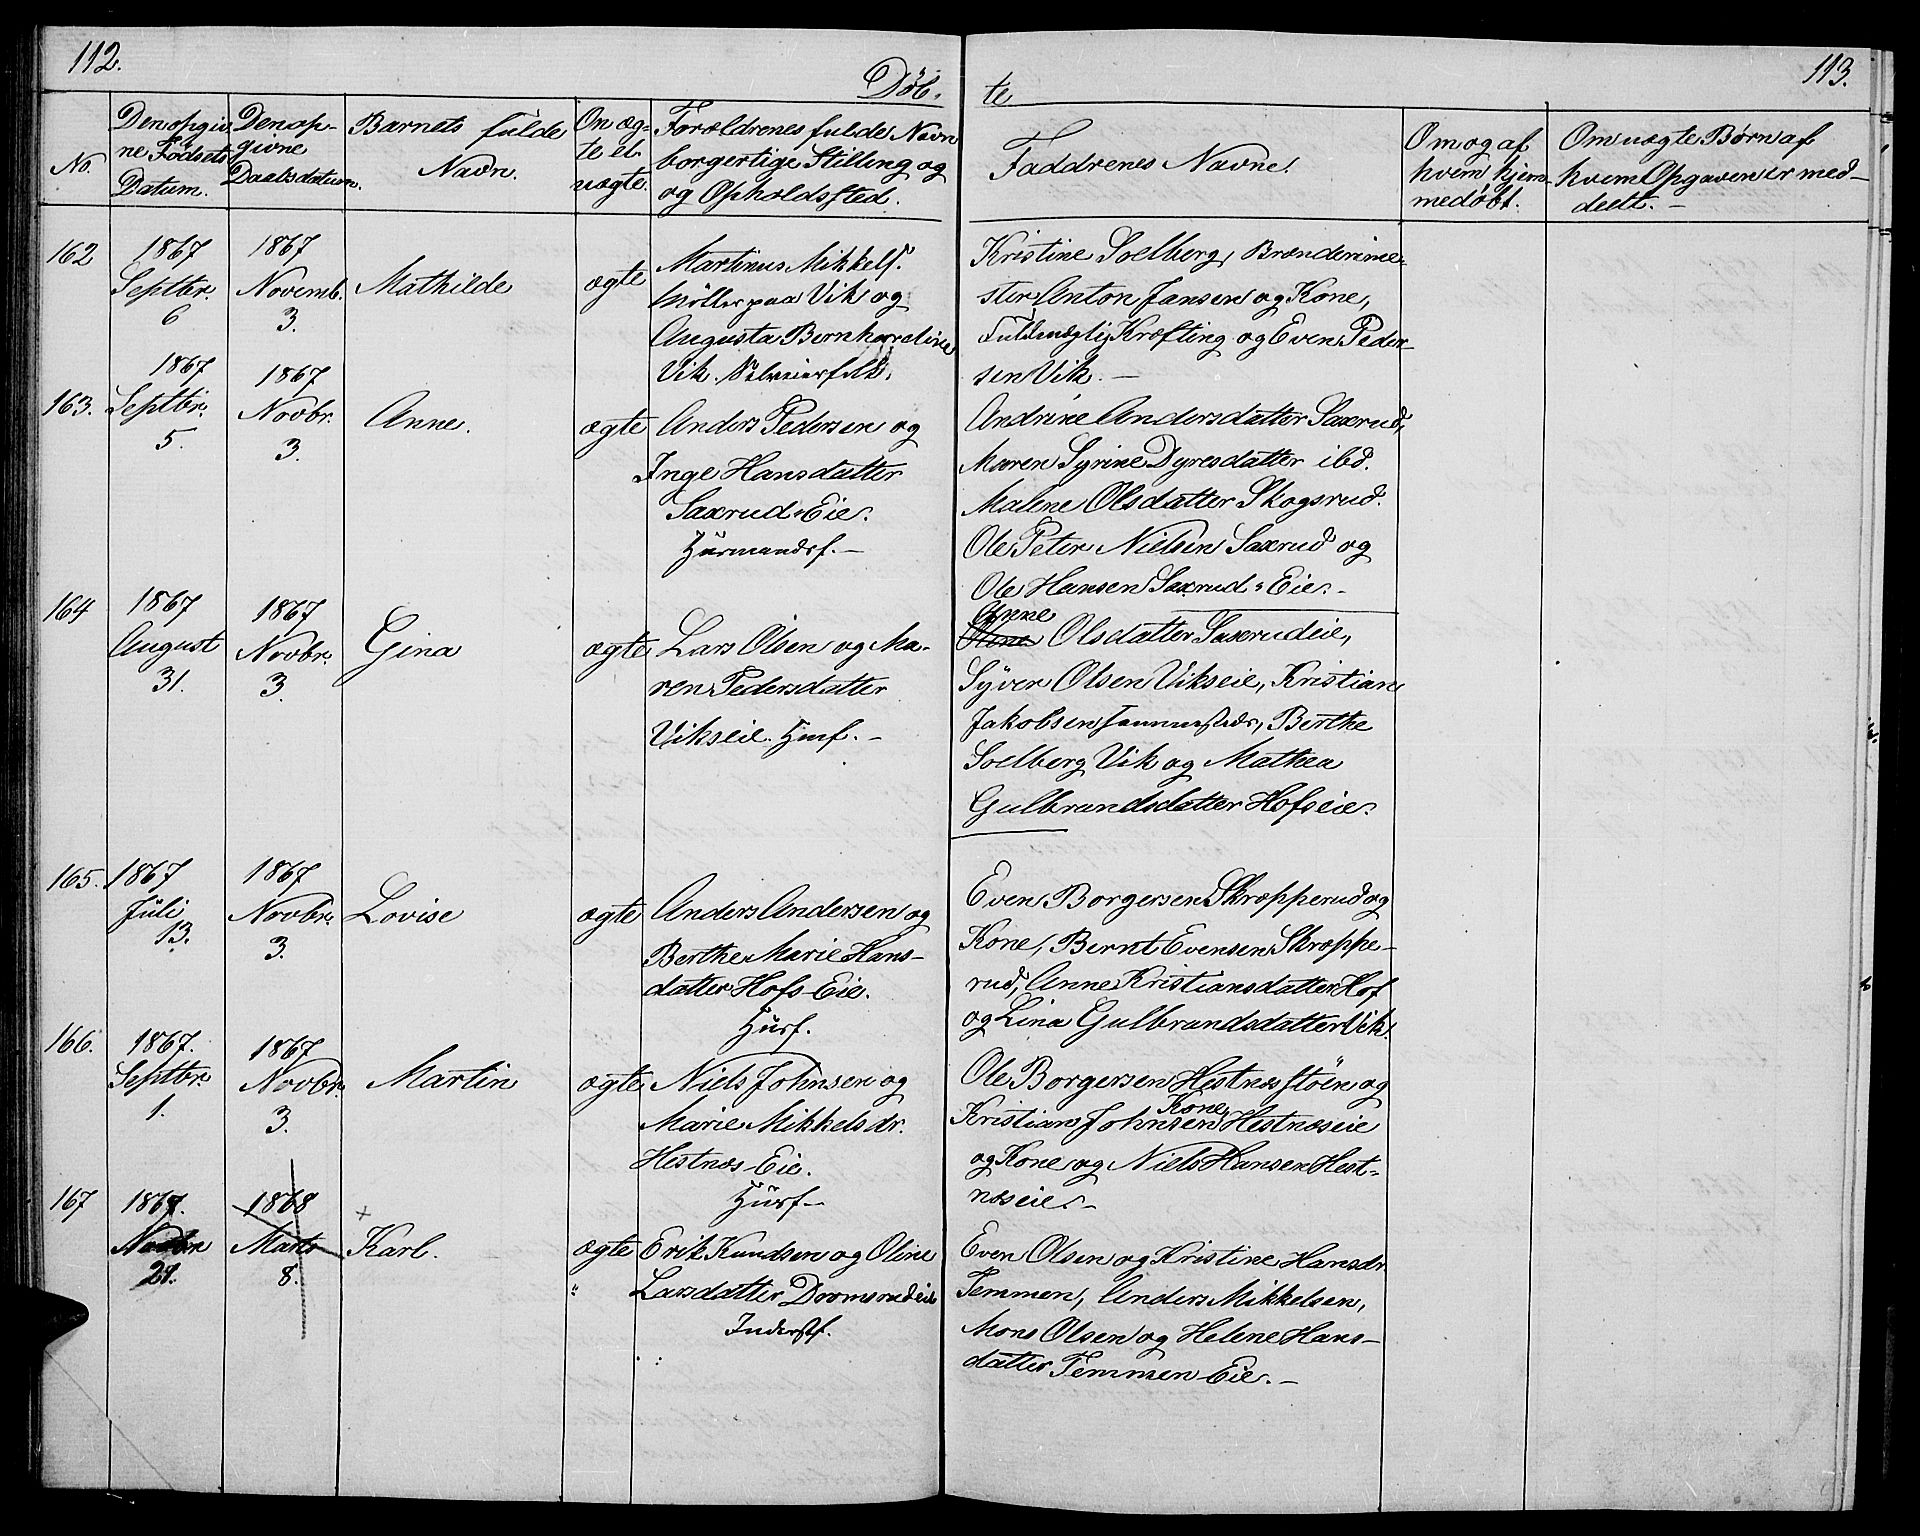 112.
Döb.
No.
Den opgiv
ne Födsels
Datum.
Den op-
givne
Daabsdatum.
Barnets fulde
Navn.
Om æg-
te el.
uægte.
Forældrenes fulde Navn
borgerlige Stilling og
og Opholdssted.
162
1867
Septbr.
6
1867
Novemb.
3.
Mathilde
ægte
Martinus Mikkels.
Möller paa Vik og
Augusta Bernhardine
Vik.
163.
1867
Septbr.
5.
1867
Novbr.
3.
Anne.
ægte
Anders Pedersen og
Inge Hansdatter
Saxrud-Eie.
Husmandsf.-
164
1867
August
31.
1867
Novbr.
3.
Gina
ægte
Lars Olsen og Ma-
ren Pedersdatter
Vikseie. Husf.-
165.
1867
Juli
13.
1867
Novbr.
3.
Lovise
ægte
Anders Andersen og
Berthe Marie Hans-
datter Hofs-Eie.
Husf.
166.
1867.
Septbr.
1.
1867
Novbr.
3.
Martin
ægte
Niels Johnsen og
Marie Mikkelsdr.
Hestnæs-Eie.
Husf-
167
1867.
Novbr
1868
Marts
8.
Karl.
ægte
Erik Knudsen og Oline
Larsdatter
Inderstf.
113.
te
Faddrenes Navne.
Om og af
hvem hjem-
medøbt.
Om uægte Børn af
hvem Opgaven er med-
deelt.-
Kristine Solberg, Brænderime-
ster Anton Jansen og Kone,
Fuldmægtig Kræfting og Even Peder-
sen Vik.-
Andrine Andersdatter Saxrud,
Maren Syrine Dyresdatter ibd.
Malene Olsdatter Skogsrud.
Ole Peter Nielsen Saxrud og
Ole Hansen Saxrud-Eie.-
Anne
Oline Olsdatter Saxrudeie,
Syver Olsen Vikseie, Kristian
Jakobsen Berthe
Solberg Vik og Mathea
Gulbrandsdatter Hofseie.
Even Borgersen Skrapperud og
Kone, Bernt Evensen Skroppe-
rud, Anne Kristiansdatter Hof
og Lina Gulbrandsdatter Vik.
Ole Borgersen Hestnæsstöen og
Kone,
Kristian Johnsen Hestnæseie
og Kone og Niels Hansen Hest-
næseie.-
Even Olsen og Kristine Hansdr.
Temmen, Anders Mikkelsen,
Mons Olsen og Helene Hans-
datter Temmen Eie.-